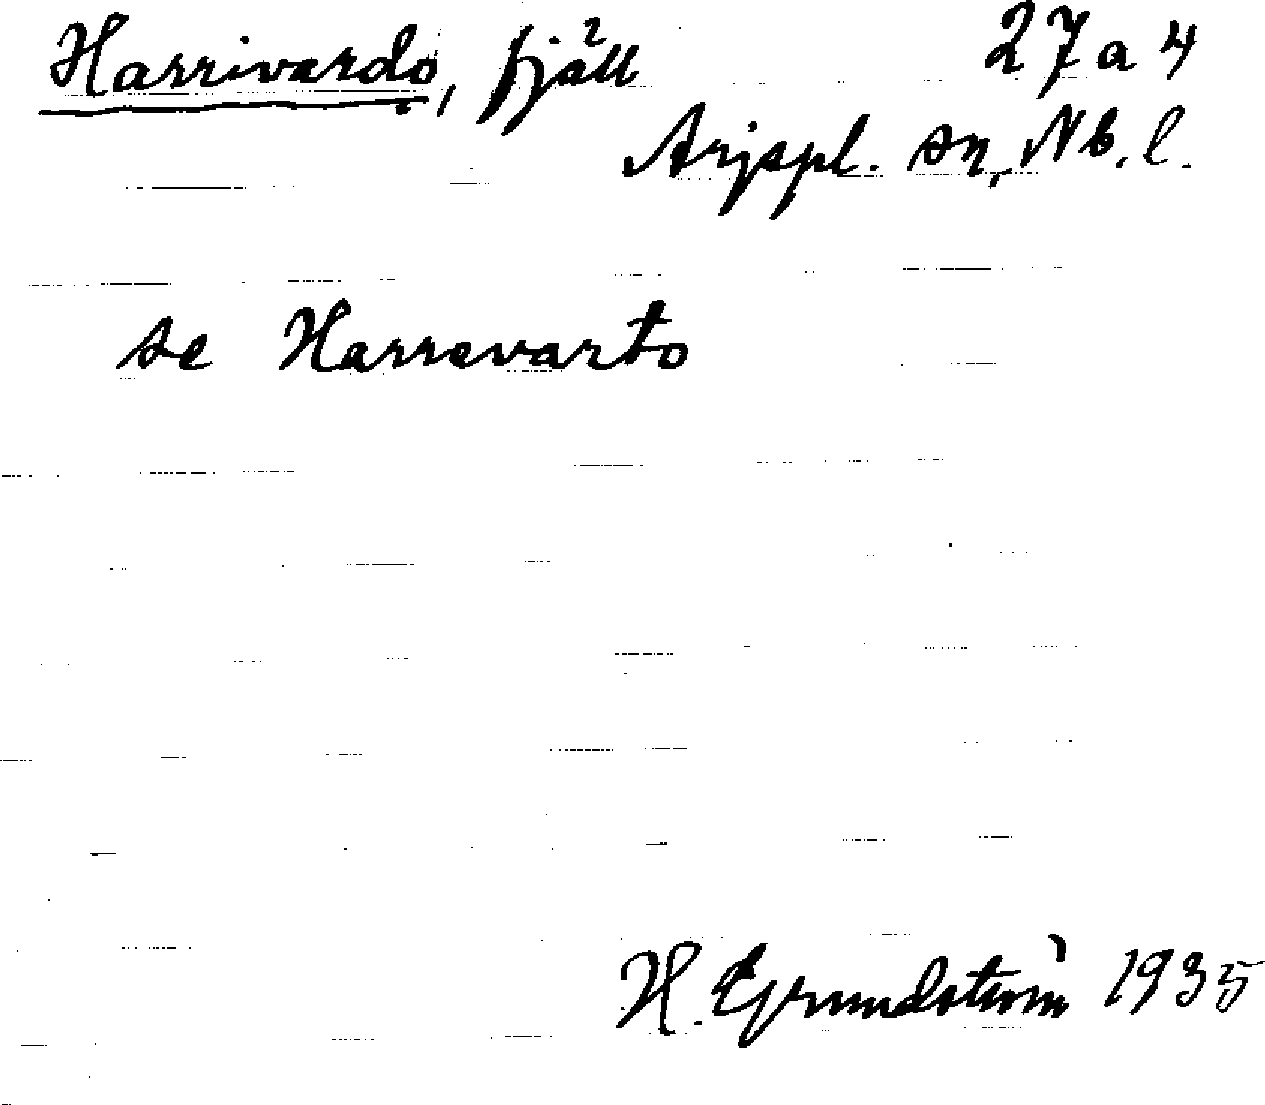 Harrivardo, fjäll 27a4
Arjspl. sn, Nb. l.
se Harrevarto
H. Grundström 1935